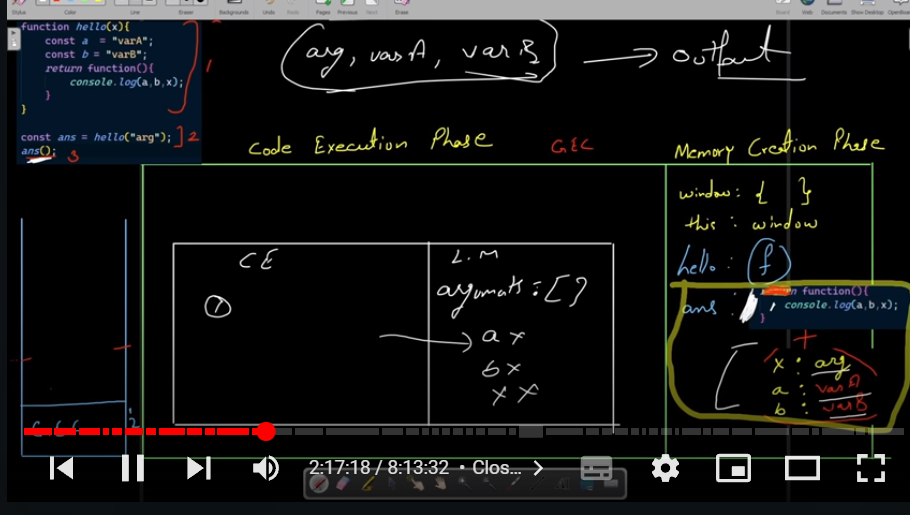 Stylus
Color
Line
Eraser
Backgrounds
Undo
Redo
Pages
Previous
Next
Erase
Board
Web
Documents
Show Desktop
function hello(x){
const a = "varA";
const b = "varB";
return function(){
console.log(a,b,x);
}
}
1
const ans = hello("arg"); 2
ans(); 3
(arg, varA, varB) → output
Code Execution Phase GEC Memory Creation Phase
window: { }
this: window
hello: f
ans: function(){
console.log(a,b,x);
}
+
x : arg
a : varA
b : varB
CE L.M
arguments: [ ]
1
→ a x
b x
x x
2:17:18 / 8:13:32 • Clos... >